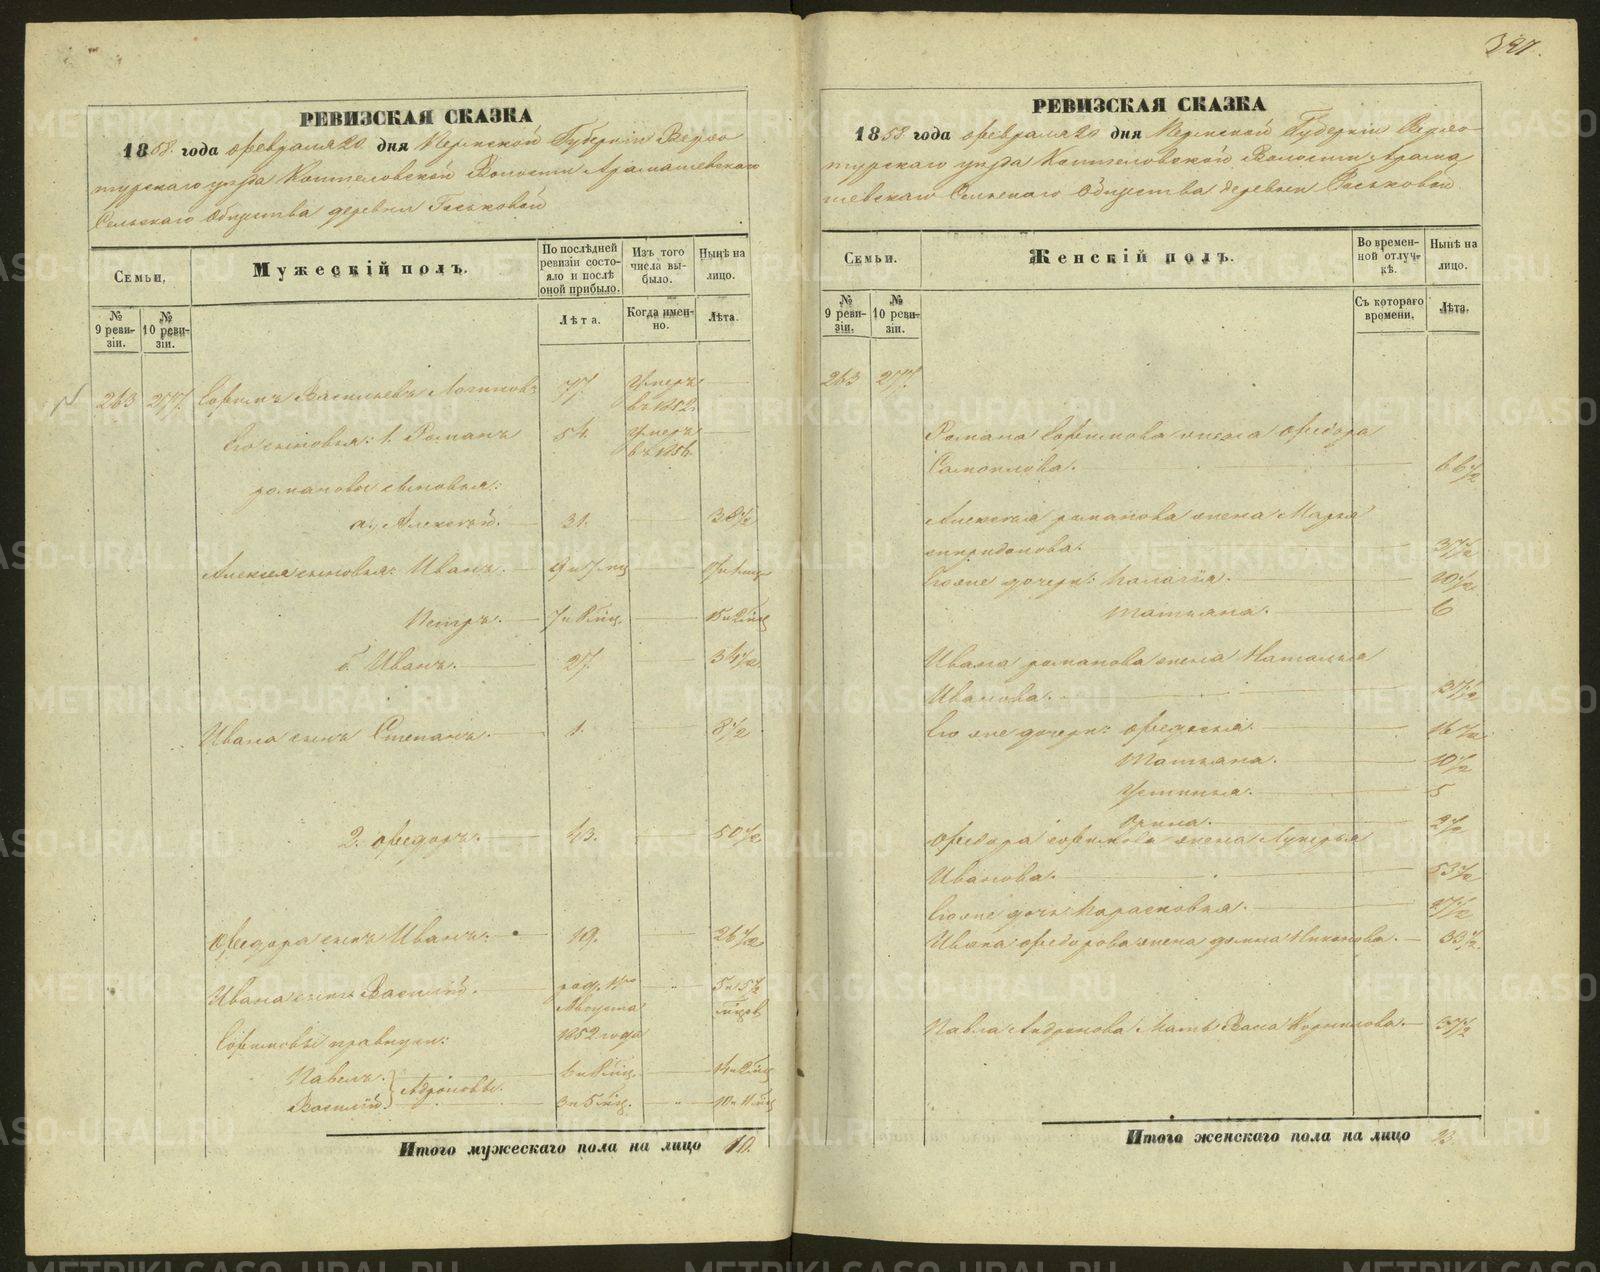 397.
РЕВИЗСКАЯ СКАЗКА
1858. года февраля 20 дня Пермской Губерніи Верхо
турскаго уезда Коптеловской Волости Арамашевскаго
Сельскаго Общества деревни Гоcьковой
Семьи.
Мужескій полъ.
По послѣдней ревизіи состояло и послѣ оной прибыло.
Изъ того числа выбыло.
Нынѣ на лицо.
№ 9 ревизіи.
№ 10 ревизіи.
Лѣта.
Когда именно.
Лѣта.
263 277. Софонъ Васильевъ Логиновъ 77. Умеръ
въ 1852.
Его сыновья: 1. Романъ 54. Умеръ
въ 1856.
романовы сыновья:
а., Алексѣй. 31. 38 1/2
Алексея сыновья: Иванъ. 9 и 7 мц
Петръ. 7 и 8 мц. 15 и 2 мц
б. Иванъ. 27. 34 1/2
Ивана сынъ Степанъ. 1. 8 1/2
2. Федоръ. 43. 50 1/2
Федора сынъ Иванъ. 19. 26 1/2
Ивана сынъ Василій. род. 5 и 5 1/2
Августа мцов
1852 года
правнуки:
Павелъ. 6 и 8 мц. 14 и 2 мц
Василій. 3 и 5 мц. 10 и 11 мц
Итого мужескаго пола на лицо 10.
РЕВИЗСКАЯ СКАЗКА
1858. года февраля 20 дня Пермской Губерніи Верхо-
турскаго уезда Коптеловской Волости Арама
шевскаго Сельскаго Общества деревни Гоcьковой
Семьи.
Женскій полъ.
Во временной отлучкѣ.
Нынѣ на лицо.
№ 9 ревизіи.
№ 10 ревизіи.
Съ котораго времени.
Лѣта.
263 277.
Романа жена Федора
Самоилова. 66 1/2
Алексея романова жена Марья
спиридонова. 37 1/2
Его же дочери: Палагія. 10 1/2
Татьяна. 6
Ивана романова жена Наталья
Иванова. 37 1/2
Его же дочери: Федосья. 16 1/2
Татьяна. 10 1/2
Устинья. 5
2 1/2
Федора жена Лукерья
Иванова. 53 1/2
Его же дочь Парасковья. 27 1/2
Ивана Федорова жена домна Никонова. 33 1/2
Павла Андронова Мать Васа Корнилова. 37 1/2
Итого женскаго пола на лицо 13.